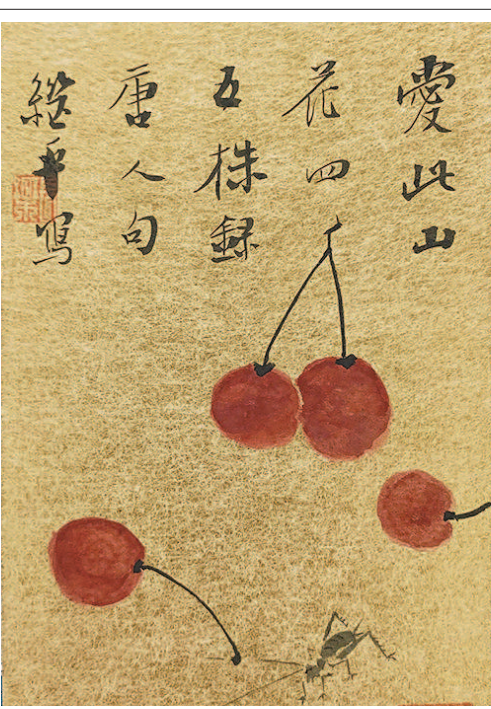 愛此山
花四
五株録
唐人句
繼平寫